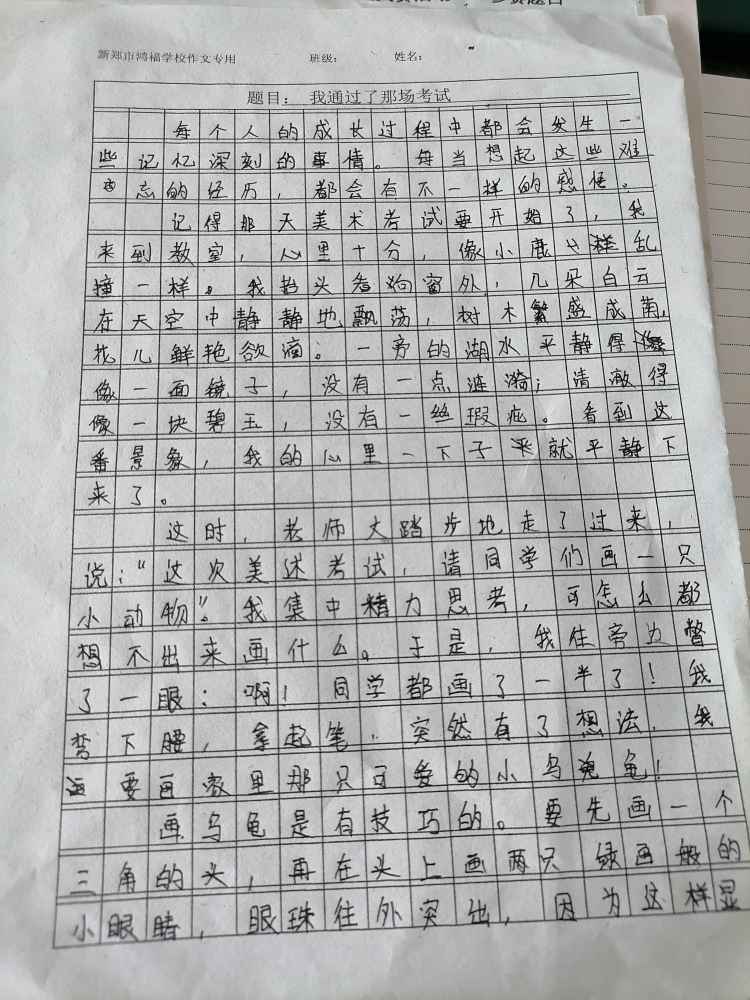 新郑市鸿福学校作文专用 班级： 姓名：
题目： 我通过了那场考试
每个人的成长过程中都会发生一
些记忆深刻的事情。每当想起这些难
忘的经历，都会有不一样的感悟。
记得那天美术考试要开始了，我
来到教室，心里十分，像小鹿乱
撞一样。我抬头看向窗外，几朵白云
在天空中静静地飘荡，树木繁盛成荫，
花儿鲜艳欲滴。一旁的湖水平静得
像一面镜子，没有一点涟漪；清澈得
像一块碧玉，没有一丝瑕疵。看到这
番景象，我的心里一下子就平静下
来了。
这时，老师大踏步地走了过来，
说：“这次美述考试，请同学们画一只
小动物”。我集中精力思考，可怎么都
想不出来画什么。于是，我往旁边瞥
了一眼：啊！同学都画了一半了！我
弯下腰，拿起笔，突然有了想法，我
要画家里那只可爱的小乌龟！
画乌龟是有技巧的。要先画一个
三角的头，再在头上画两只绿画般的
小眼睛，眼珠往外突出，因为这样显